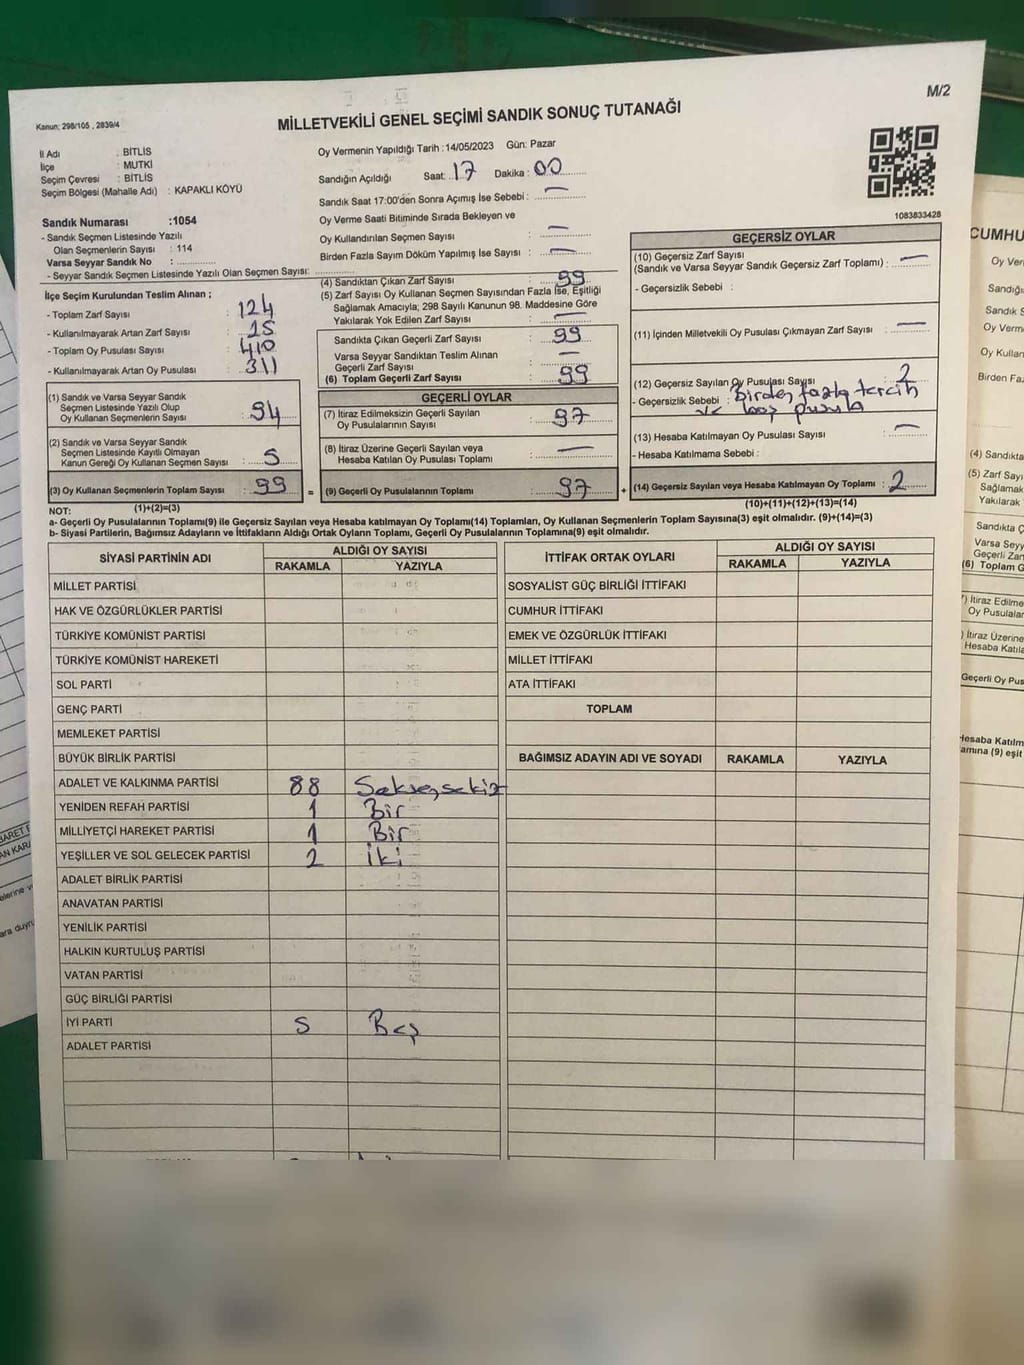 M/2
Kanun: 298/105 , 2839/4
MİLLETVEKİLİ GENEL SEÇİMİ SANDIK SONUÇ TUTANAĞI
İl Adı : BİTLİS
İlçe : MUTKİ
Seçim Çevresi : BİTLİS
Seçim Bölgesi (Mahalle Adı) : KAPAKLI KÖYÜ
Sandık Numarası :1054
- Sandık Seçmen Listesinde Yazılı
Olan Seçmenlerin Sayısı : 114
Varsa Seyyar Sandık No :
- Seyyar Sandık Seçmen Listesinde Yazılı Olan Seçmen Sayısı:
Oy Vermenin Yapıldığı Tarih :14/05/2023 Gün: Pazar
Sandığın Açıldığı Saat: 17 Dakika : 00
Sandık Saat 17:00'den Sonra Açımış İse Sebebi : —
Oy Verme Saati Bitiminde Sırada Bekleyen ve
Oy Kullandırılan Seçmen Sayısı : —
Birden Fazla Sayım Döküm Yapılmış İse Sayısı : —
1083833428
İlçe Seçim Kurulundan Teslim Alınan ;
- Toplam Zarf Sayısı : 124
- Kullanılmayarak Artan Zarf Sayısı : 25
- Toplam Oy Pusulası Sayısı : 410
- Kullanılmayarak Artan Oy Pusulası : 311
(1) Sandık ve Varsa Seyyar Sandık
Seçmen Listesinde Yazılı Olup
Oy Kullanan Seçmenlerin Sayısı : 94
(2) Sandık ve Varsa Seyyar Sandık
Seçmen Listesinde Kayıtlı Olmayan
Kanun Gereği Oy Kullanan Seçmen Sayısı : 5
(3) Oy Kullanan Seçmenlerin Toplam Sayısı : 99
(1)+(2)=(3)
(4) Sandıktan Çıkan Zarf Sayısı : 99
(5) Zarf Sayısı Oy Kullanan Seçmen Sayısından Fazla İse, Eşitliği
Sağlamak Amacıyla; 298 Sayılı Kanunun 98. Maddesine Göre
Yakılarak Yok Edilen Zarf Sayısı : —
Sandıkta Çıkan Geçerli Zarf Sayısı : 99
Varsa Seyyar Sandıktan Teslim Alınan
Geçerli Zarf Sayısı : —
(6) Toplam Geçerli Zarf Sayısı : 99
GEÇERLİ OYLAR
(7) İtiraz Edilmeksizin Geçerli Sayılan
Oy Pusulalarının Sayısı : 97
(8) İtiraz Üzerine Geçerli Sayılan veya
Hesaba Katılan Oy Pusulası Toplamı : —
= (9) Geçerli Oy Pusulalarının Toplamı : 97 +
GEÇERSİZ OYLAR
(10) Geçersiz Zarf Sayısı
(Sandık ve Varsa Seyyar Sandık Geçersiz Zarf Toplamı) : —
- Geçersizlik Sebebi :
(11) İçinden Milletvekili Oy Pusulası Çıkmayan Zarf Sayısı : —
(12) Geçersiz Sayılan Oy Pusulası Sayısı : 2
- Geçersizlik Sebebi : Birden fazla tercih
ve boş pusula
(13) Hesaba Katılmayan Oy Pusulası Sayısı : —
- Hesaba Katılmama Sebebi :
(14) Geçersiz Sayılan veya Hesaba Katılmayan Oy Toplamı : 2
(10)+(11)+(12)+(13)=(14)
NOT:
a- Geçerli Oy Pusulalarının Toplamı(9) ile Geçersiz Sayılan veya Hesaba katılmayan Oy Toplamı(14) Toplamları, Oy Kullanan Seçmenlerin Toplam Sayısına(3) eşit olmalıdır. (9)+(14)=(3)
b- Siyasi Partilerin, Bağımsız Adayların ve İttifakların Aldığı Ortak Oyların Toplamı, Geçerli Oy Pusulalarının Toplamına(9) eşit olmalıdır.
SİYASİ PARTİNİN ADI ALDIĞI OY SAYISI
RAKAMLA YAZIYLA
MİLLET PARTİSİ
HAK VE ÖZGÜRLÜKLER PARTİSİ
TÜRKİYE KOMÜNİST PARTİSİ
TÜRKİYE KOMÜNİST HAREKETİ
SOL PARTİ
GENÇ PARTİ
MEMLEKET PARTİSİ
BÜYÜK BİRLİK PARTİSİ
ADALET VE KALKINMA PARTİSİ 88 Seksensekiz
YENİDEN REFAH PARTİSİ 1 Bir
MİLLİYETÇİ HAREKET PARTİSİ 1 Bir
YEŞİLLER VE SOL GELECEK PARTİSİ 2 İki
ADALET BİRLİK PARTİSİ
ANAVATAN PARTİSİ
YENİLİK PARTİSİ
HALKIN KURTULUŞ PARTİSİ
VATAN PARTİSİ
GÜÇ BİRLİĞİ PARTİSİ
İYİ PARTİ 5 Beş
ADALET PARTİSİ
İTTİFAK ORTAK OYLARI ALDIĞI OY SAYISI
RAKAMLA YAZIYLA
SOSYALİST GÜÇ BİRLİĞİ İTTİFAKI
CUMHUR İTTİFAKI
EMEK VE ÖZGÜRLÜK İTTİFAKI
MİLLET İTTİFAKI
ATA İTTİFAKI
TOPLAM
BAĞIMSIZ ADAYIN ADI VE SOYADI RAKAMLA YAZIYLA
CUMHU
Oy Ver
Sandığı
Sandık S
Oy Verm
Oy Kullan
Birden Faz
(4) Sandıkta
(5) Zarf Sayı
Sağlamak
Yakılarak
Sandıkta Ç
Varsa Seyy
Geçerli Zar
(6) Toplam G
) İtiraz Edilme
Oy Pusulalar
) İtiraz Üzerine
Hesaba Katıla
Geçerli Oy Pus
Hesaba Katılm
amına (9) eşit